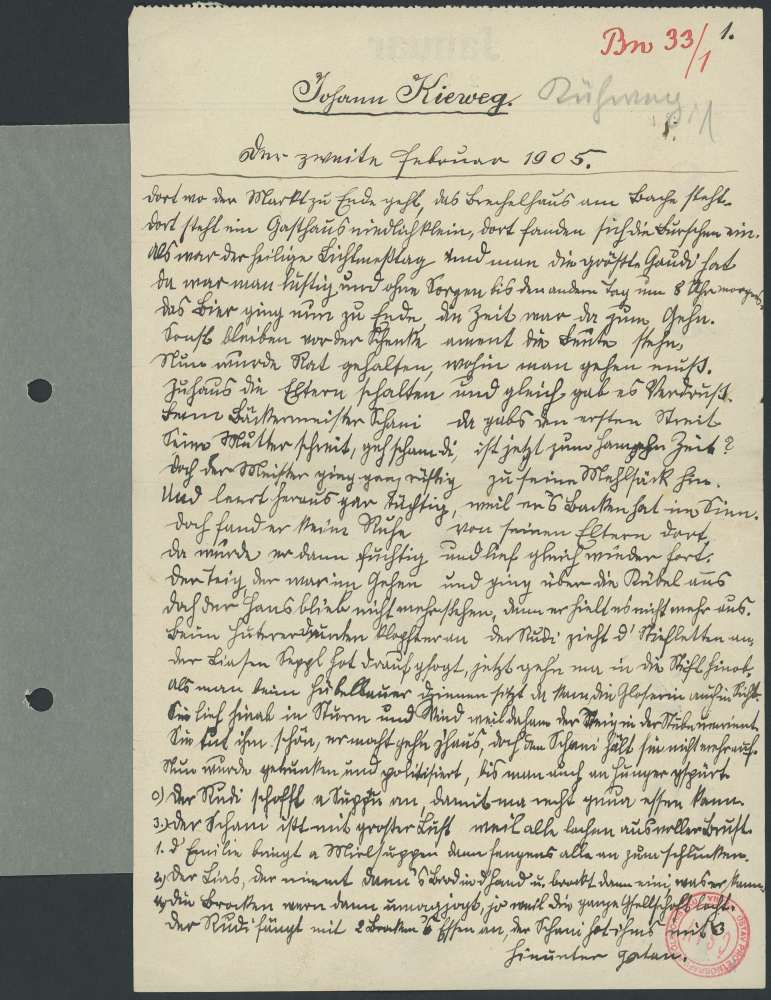 Bn 33/1
1.
Johann Kieweg.
Der zweite Februar 1905.
Dort wo der Markt zu Ende geht, das Brechelhaus am Bache steht.
Dort steht ein Gasthaus niedlich klein, dort fanden sich die Burschen ein.
Als war der heilige Lichtmeßtag und man die größte Gaudi hat
da war man lustig und ohne Sorgen bis den andern Tag um 8 Uhr morgens.
das Bier ging nun zu Ende die Zeit war da zum Gehn.
Sonst bleiben vor der Schenke ament die Leute stehn.
Nun wurde Rat gehalten, wohin man gehen muß.
Zuhaus die Eltern schalten und gleich gab es Verdruß.
Beim Bäckermeister Schani da gabs den ersten Streit
Seine Mutter schreit, geh scham di, ist jetzt zum Hamgehn Zeit?
Doch der Meister ging ganz rüstig zu seine Mehlsäck hin.
Und leert heraus gar tüchtig, weil er's Backen hat im Sinn.
Doch fand er keine Ruhe von seinen Eltern dort,
da wurde er dann fuchtig und lief gleich wieder fort.
Der Teig, der war im Gehen und ging über die Kübel aus
Doch der Hans blieb nicht mehr stehen, denn er hielt es nicht mehr aus.
Beim klopfter an der Rudi zieht d' Stiefletten an,
der Liasen Seppl hot drauf gsogt, jetzt gehn ma in die hinot.
Als man beim Hübelbauer drinnen sitzt da kam die Gloserin auch in Sicht.
Sie lief hinab in Sturm und Wind weil daham der Teig in der Stube umrinnt.
Sie tut ihm schön, er mocht gehn z'haus, doch den Schani hält sie nicht mehr auf.
Nun wurde getrunken und politisiert, bis man auch an Hunger gspürt.
Der Rudi schofft a Suppn an, damit ma recht gnua essen kann.
3.) der Schani ißt mit großer Lust weil alle lachen aus voller Brust.
1. d' Emilie bringt a Suppen dann fangens alle an zum schlucken.
2.) Der Lias, der nimmt dann's Brod in d'Hand u. brockt dann eini, was er kann.
4.) Die Brocken wern dann umagjogt, jo weil die ganze Gsellschoft locht.
Der Rudi fängt mit 2 Brocken 's Essen an, der Schani hot ihms mit 3
hinunter getan.